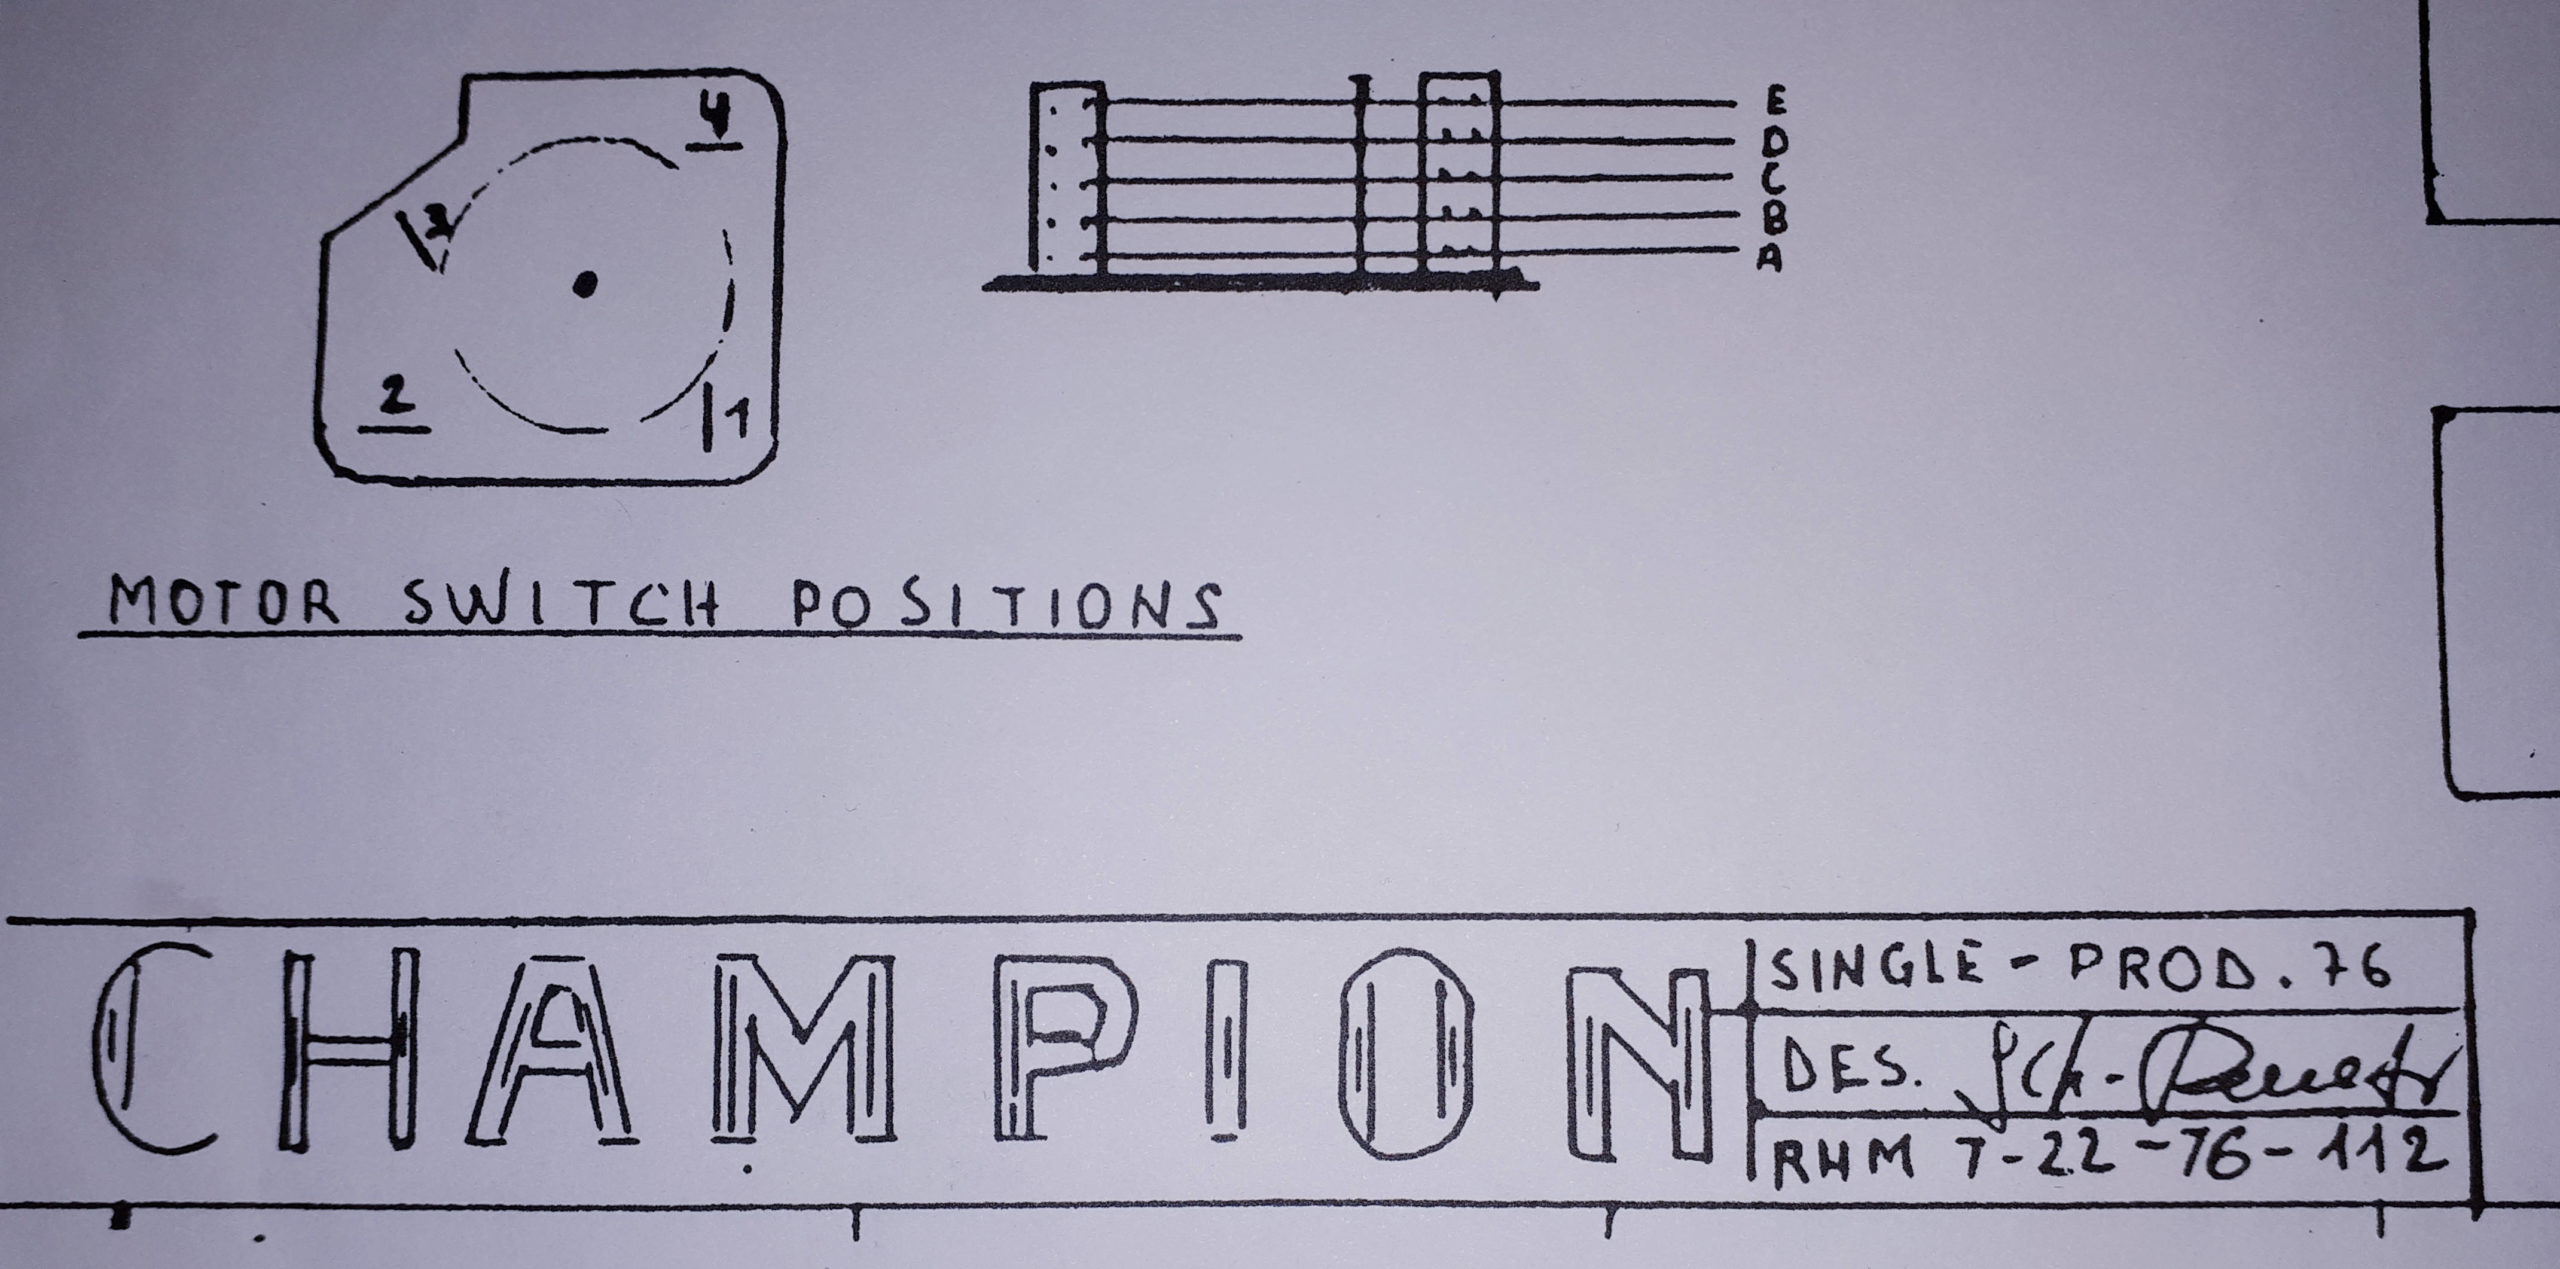 4
3
2
1
E
D
C
B
A
MOTOR SWITCH POSITIONS
CHAMPION
SINGLE - PROD. 76
DES.
RHM T-22-76-112